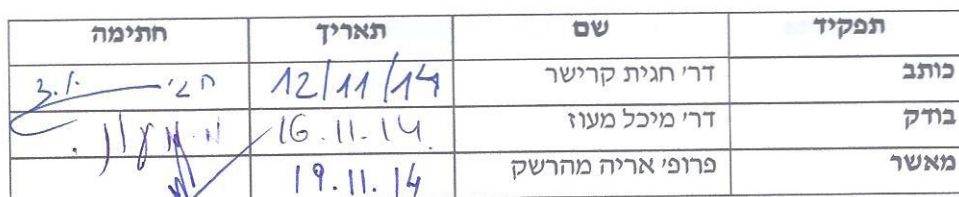 תפקיד שם תאריך חתימה
כותב דר׳ חגית קרישר 12/11/14
בודק דר׳ מיכל מעוז 16.11.14
מאשר פרופ׳ אריה מהרשק 19.11.14